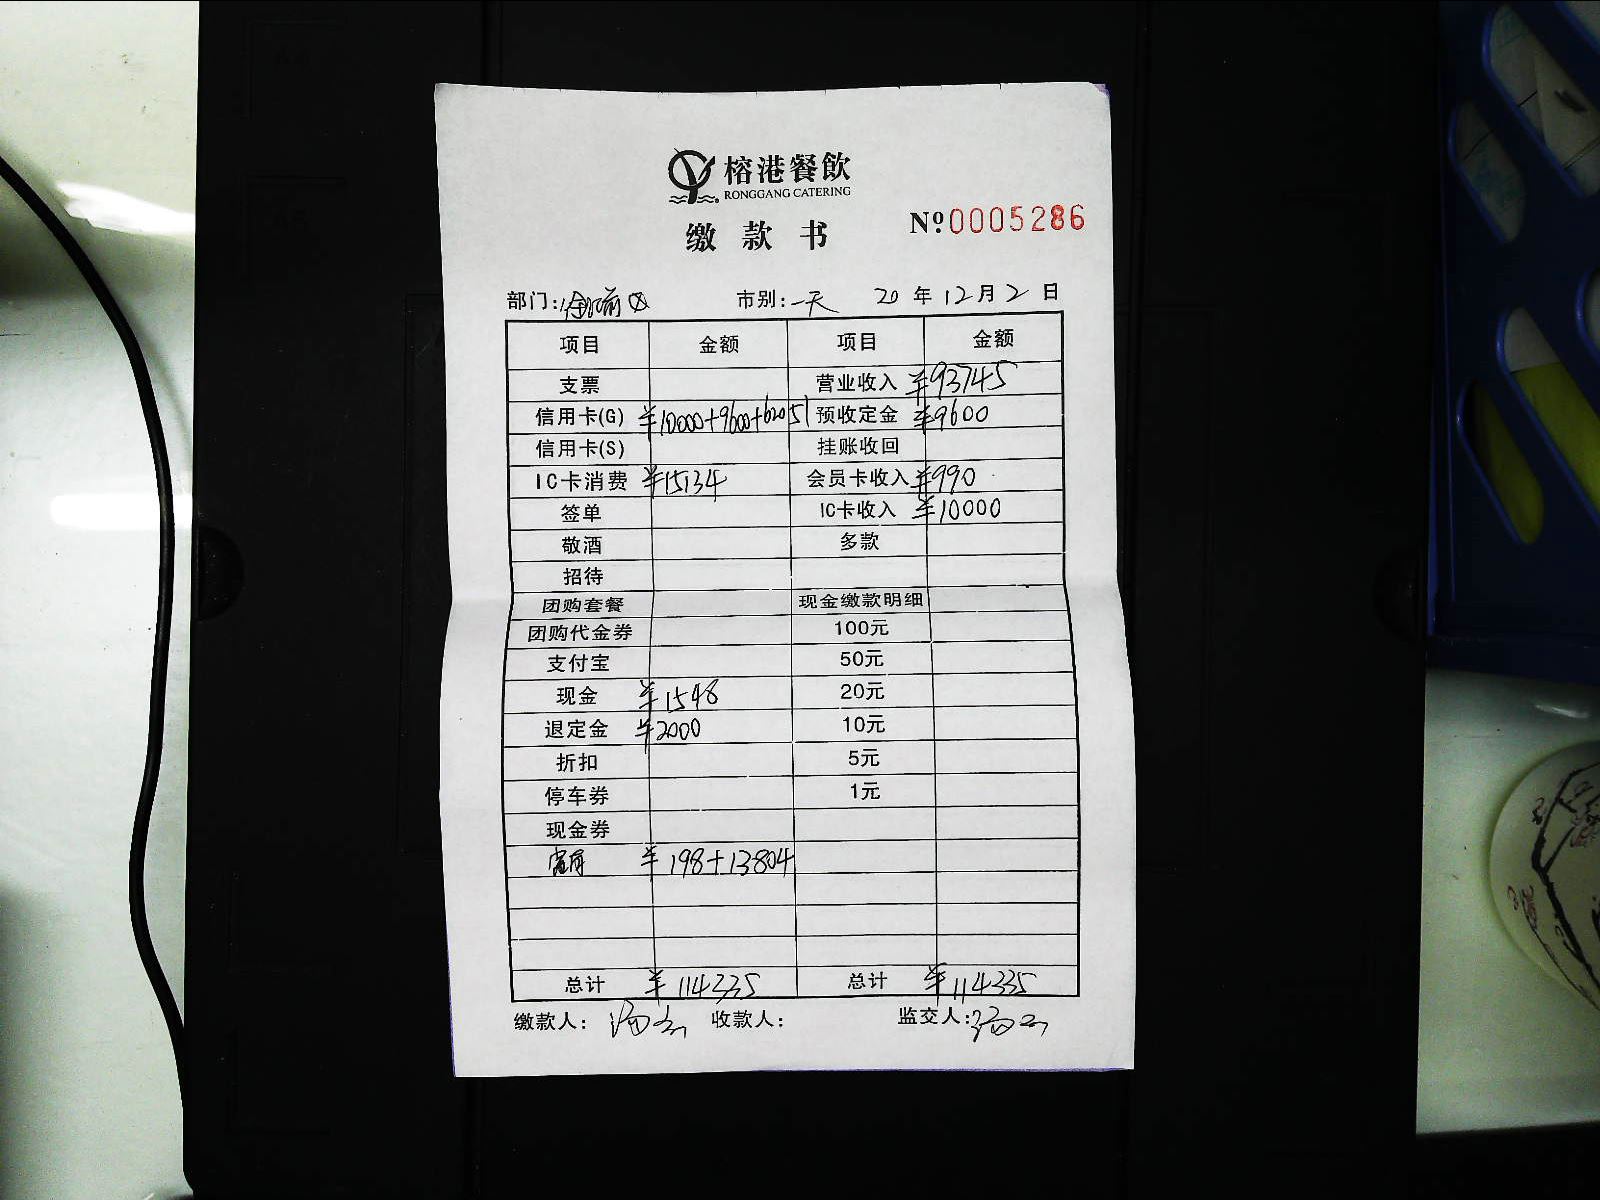 榕港餐飲
RONGGANG CATERING
缴款书
Nº:0005286
部门: 市别:一天 20年12月2日
项目 金额 项目 金额
支票 营业收入 ¥93745
信用卡(G) ¥10000+9600+62051 预收定金 ¥9600
信用卡(S) 挂账收回
IC卡消费 ¥15134 会员卡收入 ¥990
签单 IC卡收入 ¥10000
敬酒 多款
招待
团购套餐 现金缴款明细
团购代金券 100元
支付宝 50元
现金 ¥1548 20元
退定金 ¥2000 10元
折扣 5元
停车券 1元
现金券
¥198+13804
总计 ¥114335 总计 ¥114335
缴款人: 收款人: 监交人: